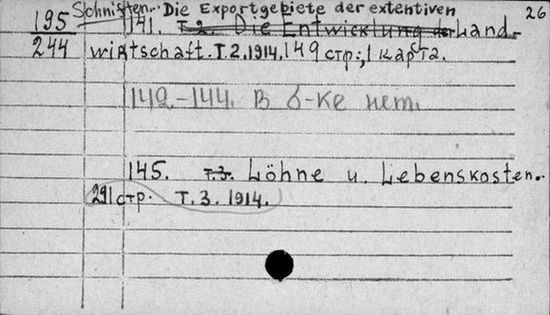 Schriften.. Die Exportgebiete der extentiven 26
195 141. Т.2. Die Entwicklung der Land-
244 wirtschaft. Т.2.1914. 149 стр., 1 карта.
142.-144. В б-ке нет.
145. Т.3. Löhne u. Lebenskosten..
291 стр. Т.3. 1914.